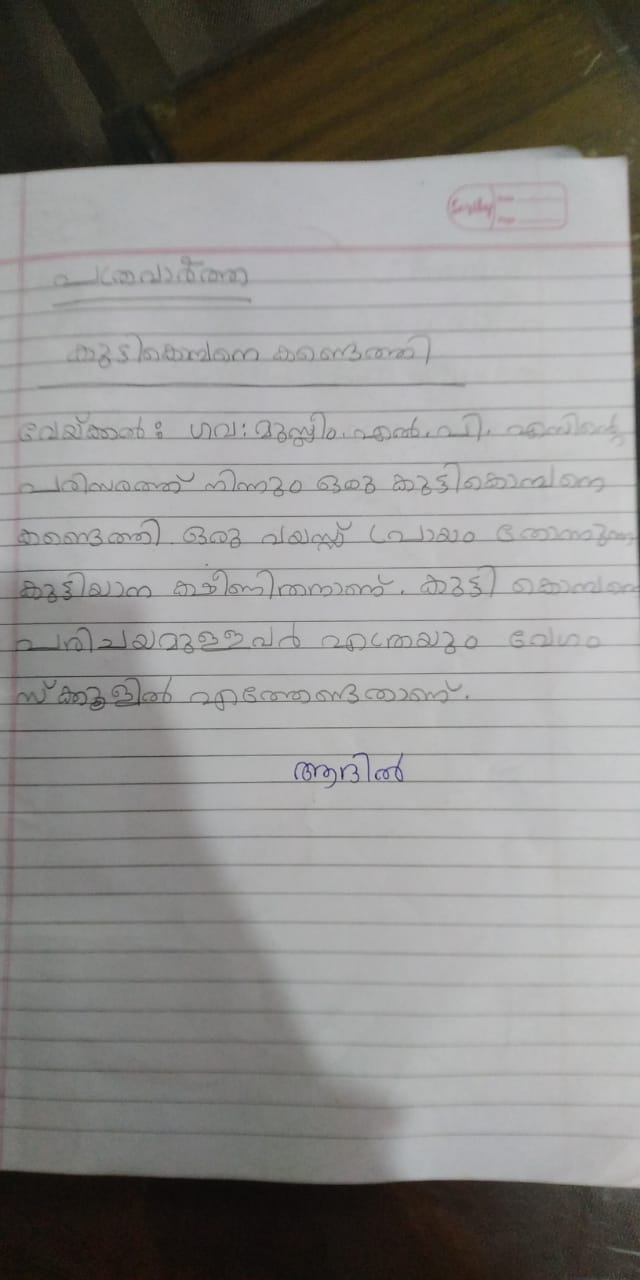 പത്രവാർത്ത
കുട്ടികൊമ്പനെ കണ്ടെത്തി
വേയ്ക്കൽ: ഗവ: മുസ്ലീം. എൽ. പി. എസിന്റെ
പരിസരത്ത് നിന്നും ഒരു കുട്ടികൊമ്പനെ
കണ്ടെത്തി. ഒരു വയസ്സ് പ്രായം തോന്നുന്ന
കുട്ടിയാന ക്ഷീണിതനാണ്. കുട്ടി കൊമ്പനെ
പരിചയമുള്ളവർ എത്രയും വേഗം
സ്ക്കൂളിൽ എത്തേണ്ടതാണ്.
ആദിൽ